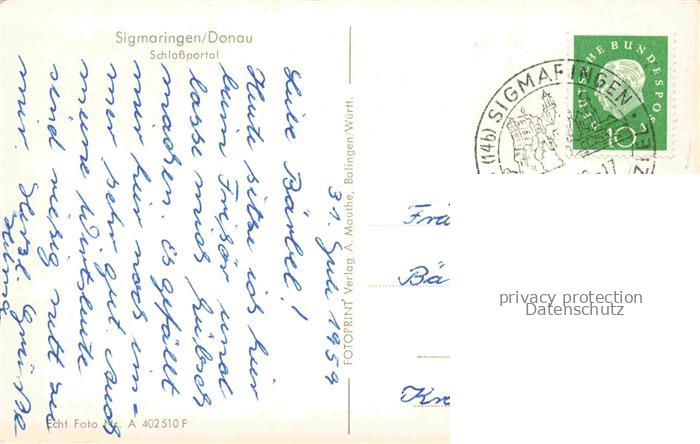 Sigmaringen/Donau
Schloßportal
31. Juli 1959
Liebe Bärbel!
Heute sitze ich hier
beim Frisör und
lasse mich hübsch
machen. Es gefällt
mir hier noch im-
mer sehr gut. Auch
meine Wirtsleute
sind riesig nett zu
mir. Herzl. Grüße
Helma
Echt Foto Nr. A 402510 F
FOTOPRINT Verlag A. Mauthe, Balingen/Württ.
(14b) SIGMARINGEN
DEUTSCHE BUNDESPOST
10
Frä
Bä
Kra
privacy protection
Datenschutz